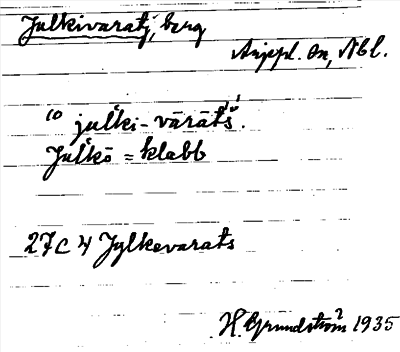 Julkivaratj, berg
Arjepl. sn, Nbl.
10 jul̀ki-vàràtś.
Jul̀kō = klabb
27C4 Jylkevarats
H. Grundström 1935